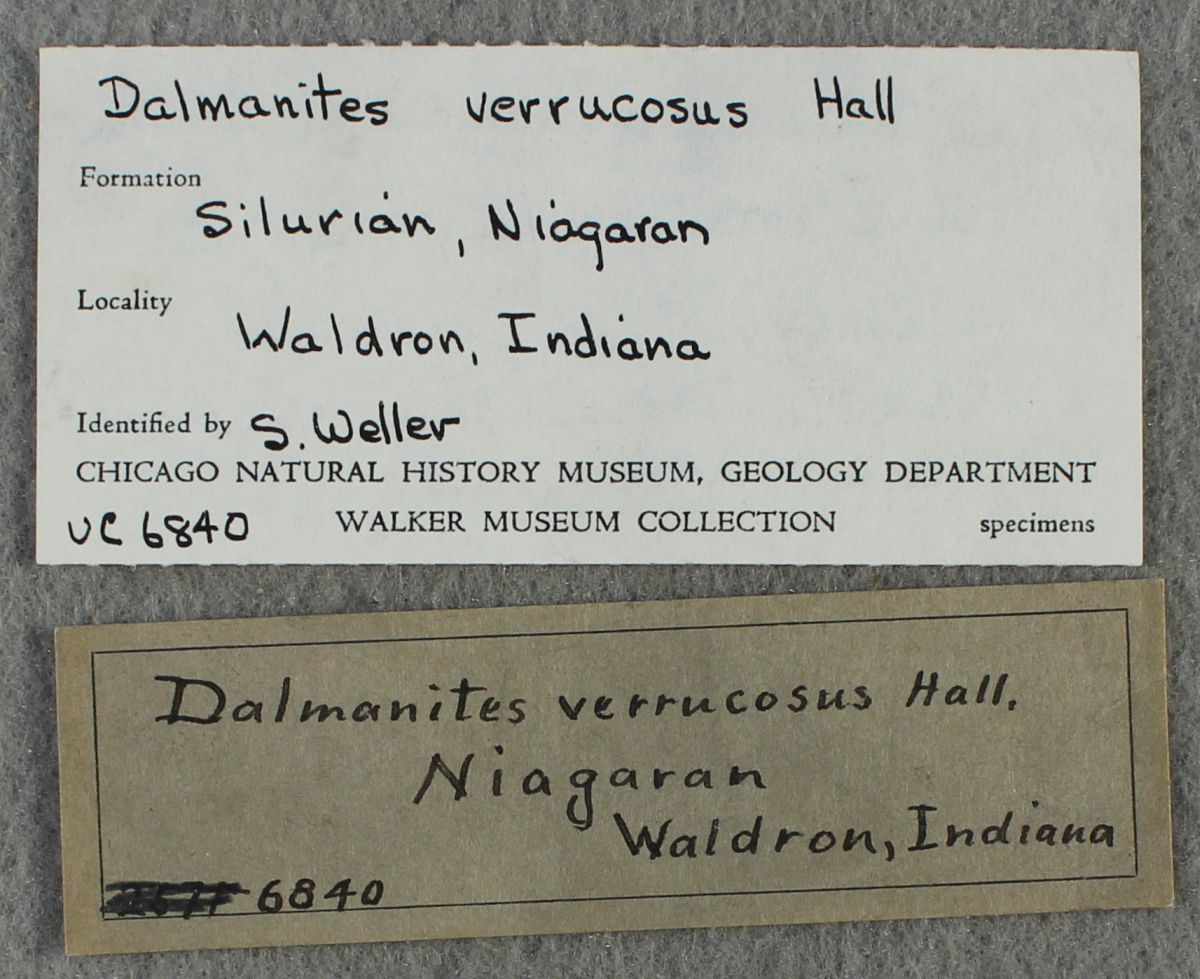 Dalmanites verrucosus Hall
Formation
Silurian, Niagaran
Locality
Waldron, Indiana
Identified by S. Weller
CHICAGO NATURAL HISTORY MUSEUM, GEOLOGY DEPARTMENT
UC 6840 WALKER MUSEUM COLLECTION specimens
Dalmanites verrucosus Hall.
Niagaran
Waldron, Indiana
6840